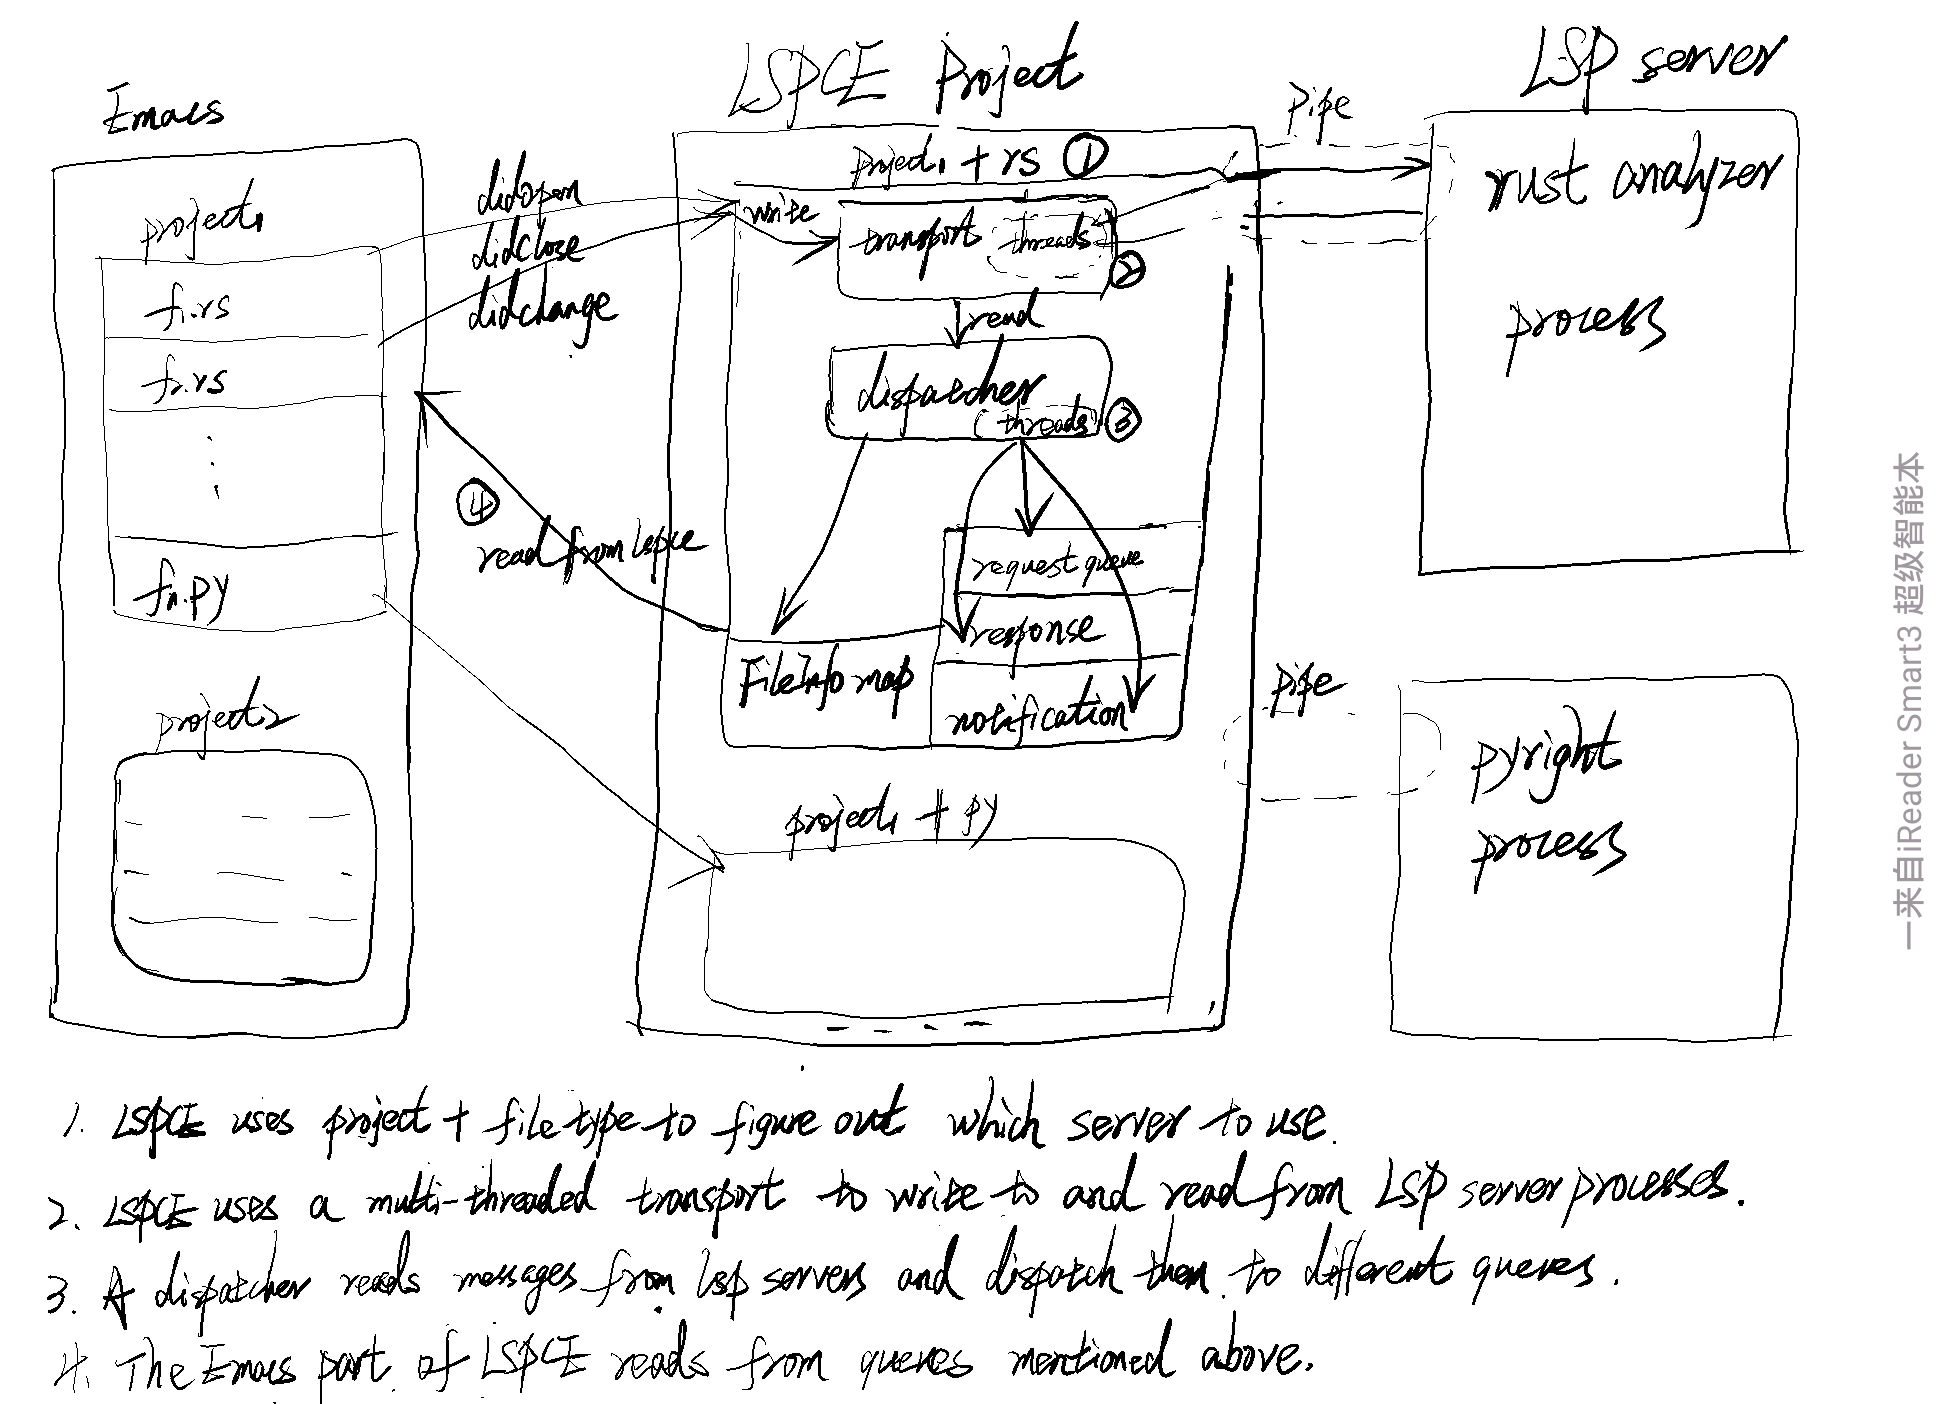 Emacs
project1
f1.rs
f2.rs
fn.py
project2
didopen
didclose
didchange
④
read from lspce
LSPCE Project
project1 + rs ①
write
transport
threads
②
read
dispatcher
(threads)
③
request queue
response
notification
FileInfo map
project1 + py
LSP server
pipe
rust analyzer
process
pipe
pyright
process
1. LSPCE uses project + file type to figure out which server to use.
2. LSPCE uses a multi-threaded transport to write to and read from LSP server processes.
3. A dispatcher reads messages from lsp servers and dispatch them to different queues.
4. The Emacs part of LSPCE reads from queues mentioned above.
一来自iReader Smart3 超级智能本